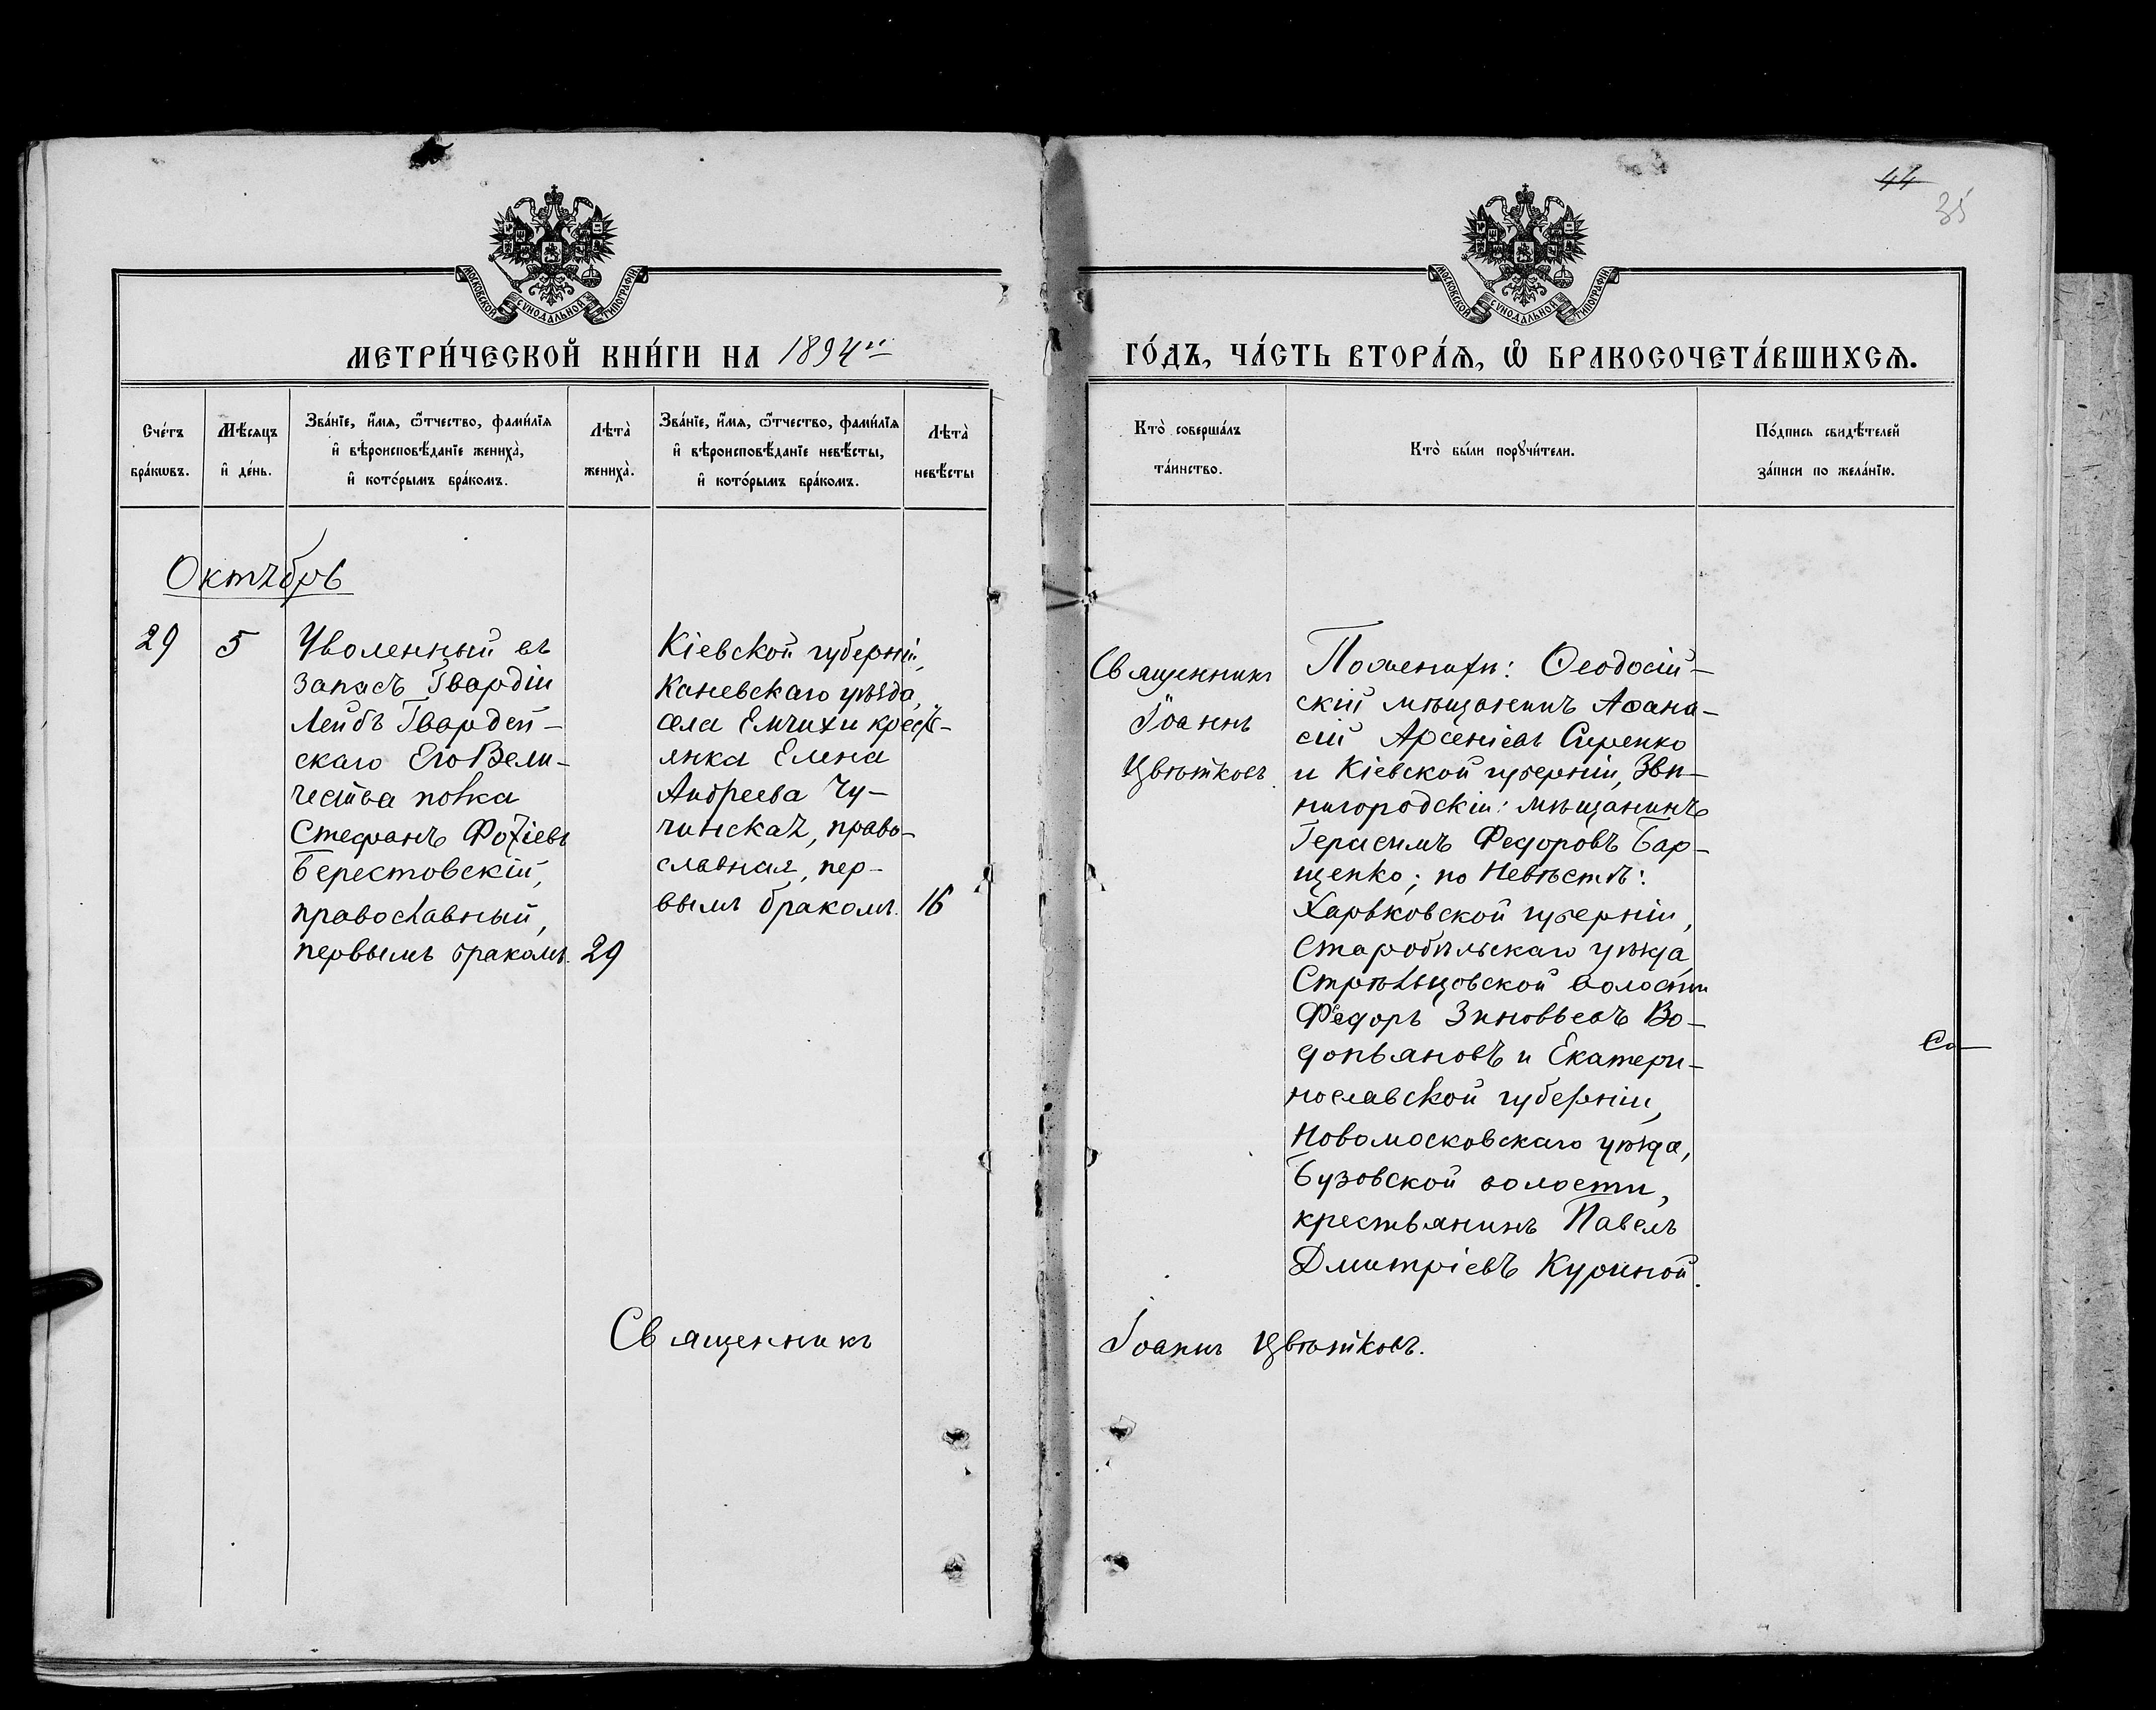 44
35
МОСКОВСКОЙ СУНОДАЛЬНОЙ ТИПОГРАФІИ
МОСКОВСКОЙ СУНОДАЛЬНОЙ ТИПОГРАФІИ
МЕТРИ́ЧЕСКОЙ КНИ́ГИ НА 1894 й
ГО́ДЪ, ЧА́СТЬ ВТОРА́Ѧ, Ѽ БРАКОСОЧЕТА́ВШИХСѦ.
Сче́тъ
бра́кѡвъ.
Мѣ́сѧцъ
и҆ де́нь.
Зва́нїе, и҆́мѧ, ѻ҆́тчество, фами́лїѧ
и҆ вѣ̀роисповѣ́данїе жениха̀,
и҆ кото́рымъ бра́комъ.
Лѣта̀
жениха̀.
Зва́нїе, и҆́мѧ, ѻ҆́тчество, фами́лїѧ
и҆ вѣ̀роисповѣ́данїе невѣ́сты,
и҆ кото́рымъ бра́комъ.
Лѣта̀
невѣ́сты
Кто̀ соверша́лъ
та́инство.
Кто̀ бы́ли порꙋчи́тели.
По́дпись свидѣ́телей
за́писи по жела́нїю.
Октябрь
29
5
Уволенный въ
запасъ Гвардіи
Лейбъ Гвардей-
скаго Его Вели-
чества полка
Стефанъ Фотіевъ
Берестовскій,
православный,
первымъ бракомъ.
29
Кіевской губерніи,
Каневскаго уѣзда,
села Емчихи крестъ-
янка Елена
Андреева Чу-
чинская, право-
славная, пер-
вымъ бракомъ.
16
Священникъ
Іоаннъ
Цвѣтковъ.
По женихѣ: Ѳеодосій-
скій мѣщанинъ Аѳана-
сій Арсеніевъ Сиренко
и Кіевской губерніи, Зве-
нигородскій: мѣщанинъ
Герасимъ Федоровъ Бар-
щенко; по Невѣстѣ:
Харьковской губерніи,
Старобѣльскаго уѣзда,
Стрѣльцовской волости
Федоръ Зиновьевъ Во-
допьяновъ и Екатери-
нославской губерніи,
Новомосковскаго уѣзда,
Бузовской волости,
крестьянинъ Павелъ
Дмитріевъ Куриной.
Священникъ
Іоаннъ Цвѣтковъ.